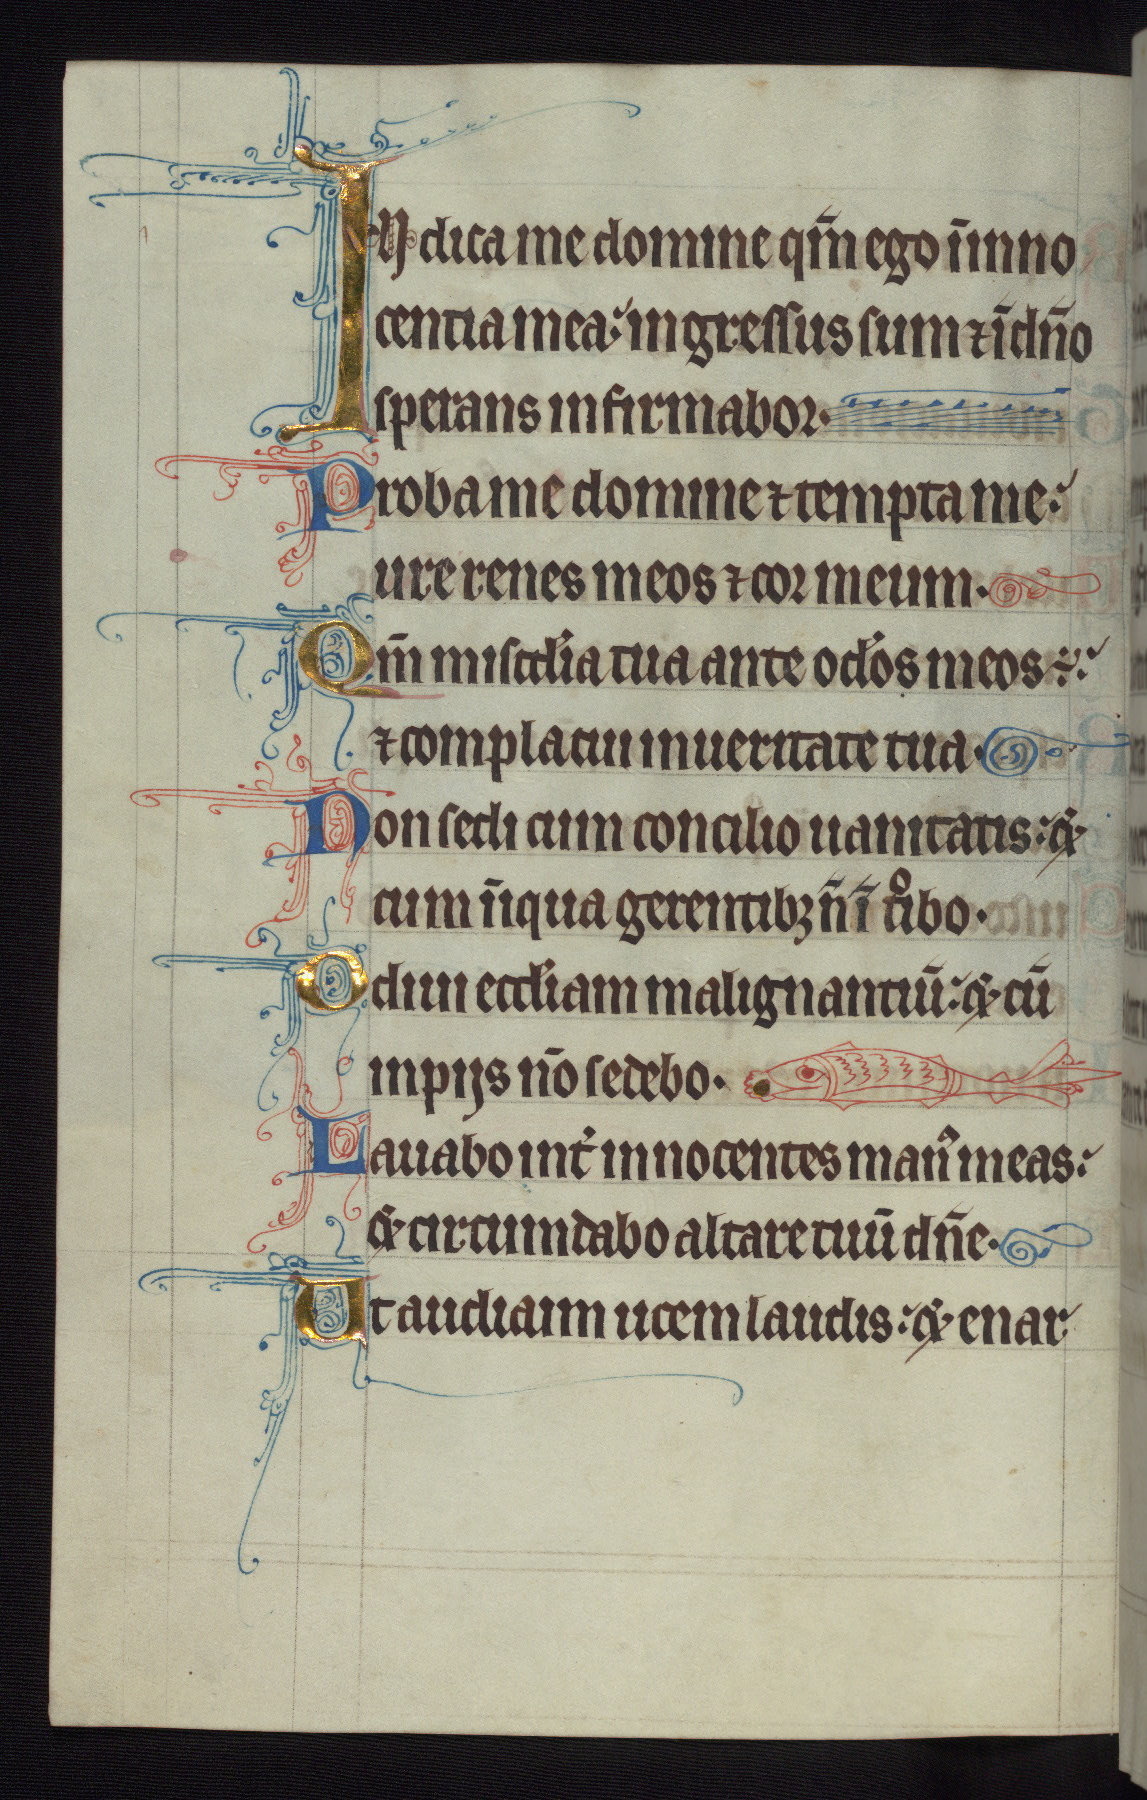 IUdica me domine qm̄ ego ī inno
centia mea: ingressus sum ⁊ ī dn̄o
sperans infirmabor.
Proba me domine ⁊ tempta me:
ure renes meos ⁊ cor meum.
Qm̄ miscd̓ia tua ante oclo̓s meos :
⁊ complacui in ueritate tua.
Non sedi cum concilio uanitatis: &
cum īiqua gerentibꝫ n̄ ītͦibo.
Odiui eccl̓iam malignantiū: & cū
inpijs nō sedebo.
Lauabo int̓ innocentes man᷒ meas:
& circumdabo altare tuū dn̄e.
Ut audiam uocem laudis: & enar